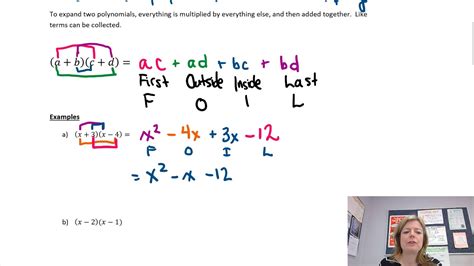 To expand two polynomials, everything is multiplied by everything else, and then added together. Like
terms can be collected.
(a + b)(c + d) = ac + ad + bc + bd
First Outside Inside Last
F O I L
Examples
a) (x + 3)(x − 4) = x² − 4x + 3x − 12
F O I L
= x² − x − 12
b) (x − 2)(x − 1)